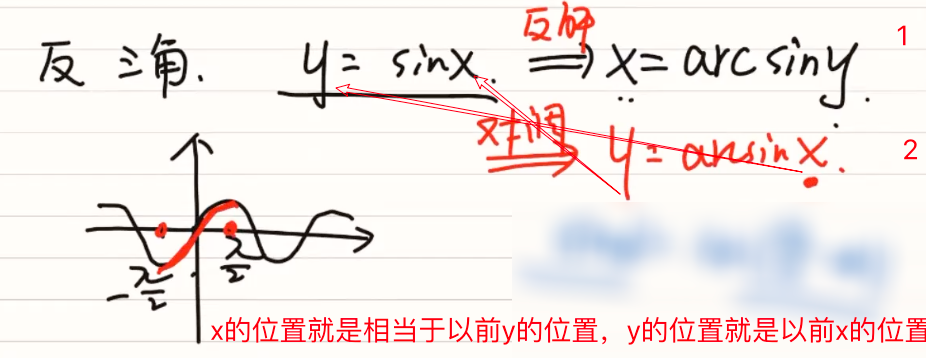 反解
1
反三角. y = sinx. ⟹ x = arcsiny.
x与y调
2
⟹ y = arcsinx.
-π/2 π/2
x的位置就是相当于以前y的位置，y的位置就是以前x的位置